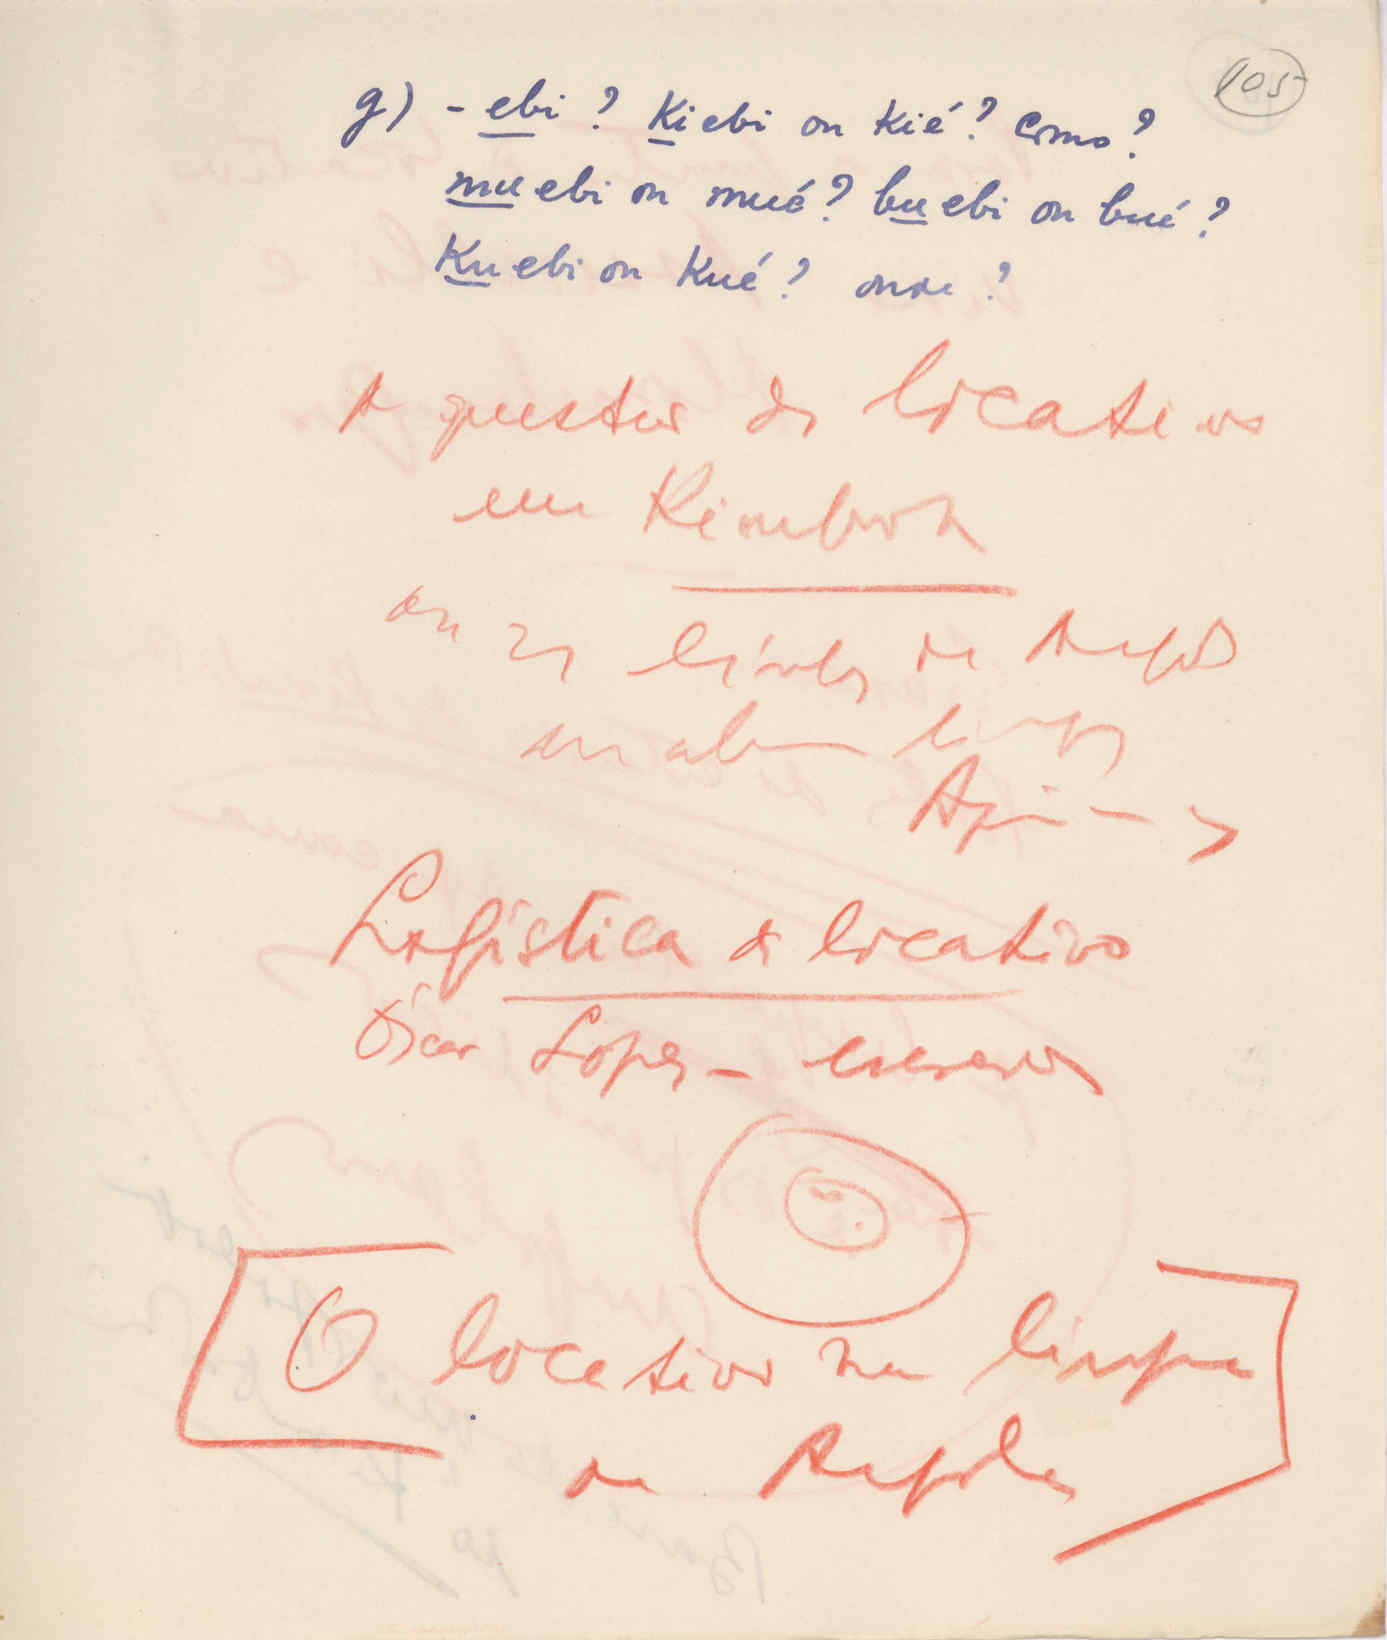 105
g) - ebi? Kiebi ou kié? como?
muebi ou mué? buebi ou bué?
Kuebi ou Kué? onde?
A questão do locativo
em Kimbundu
ou as línguas de Angola
em
Logística do locativo
Óscar Lopes - escrever
O locativo na língua
de Angola